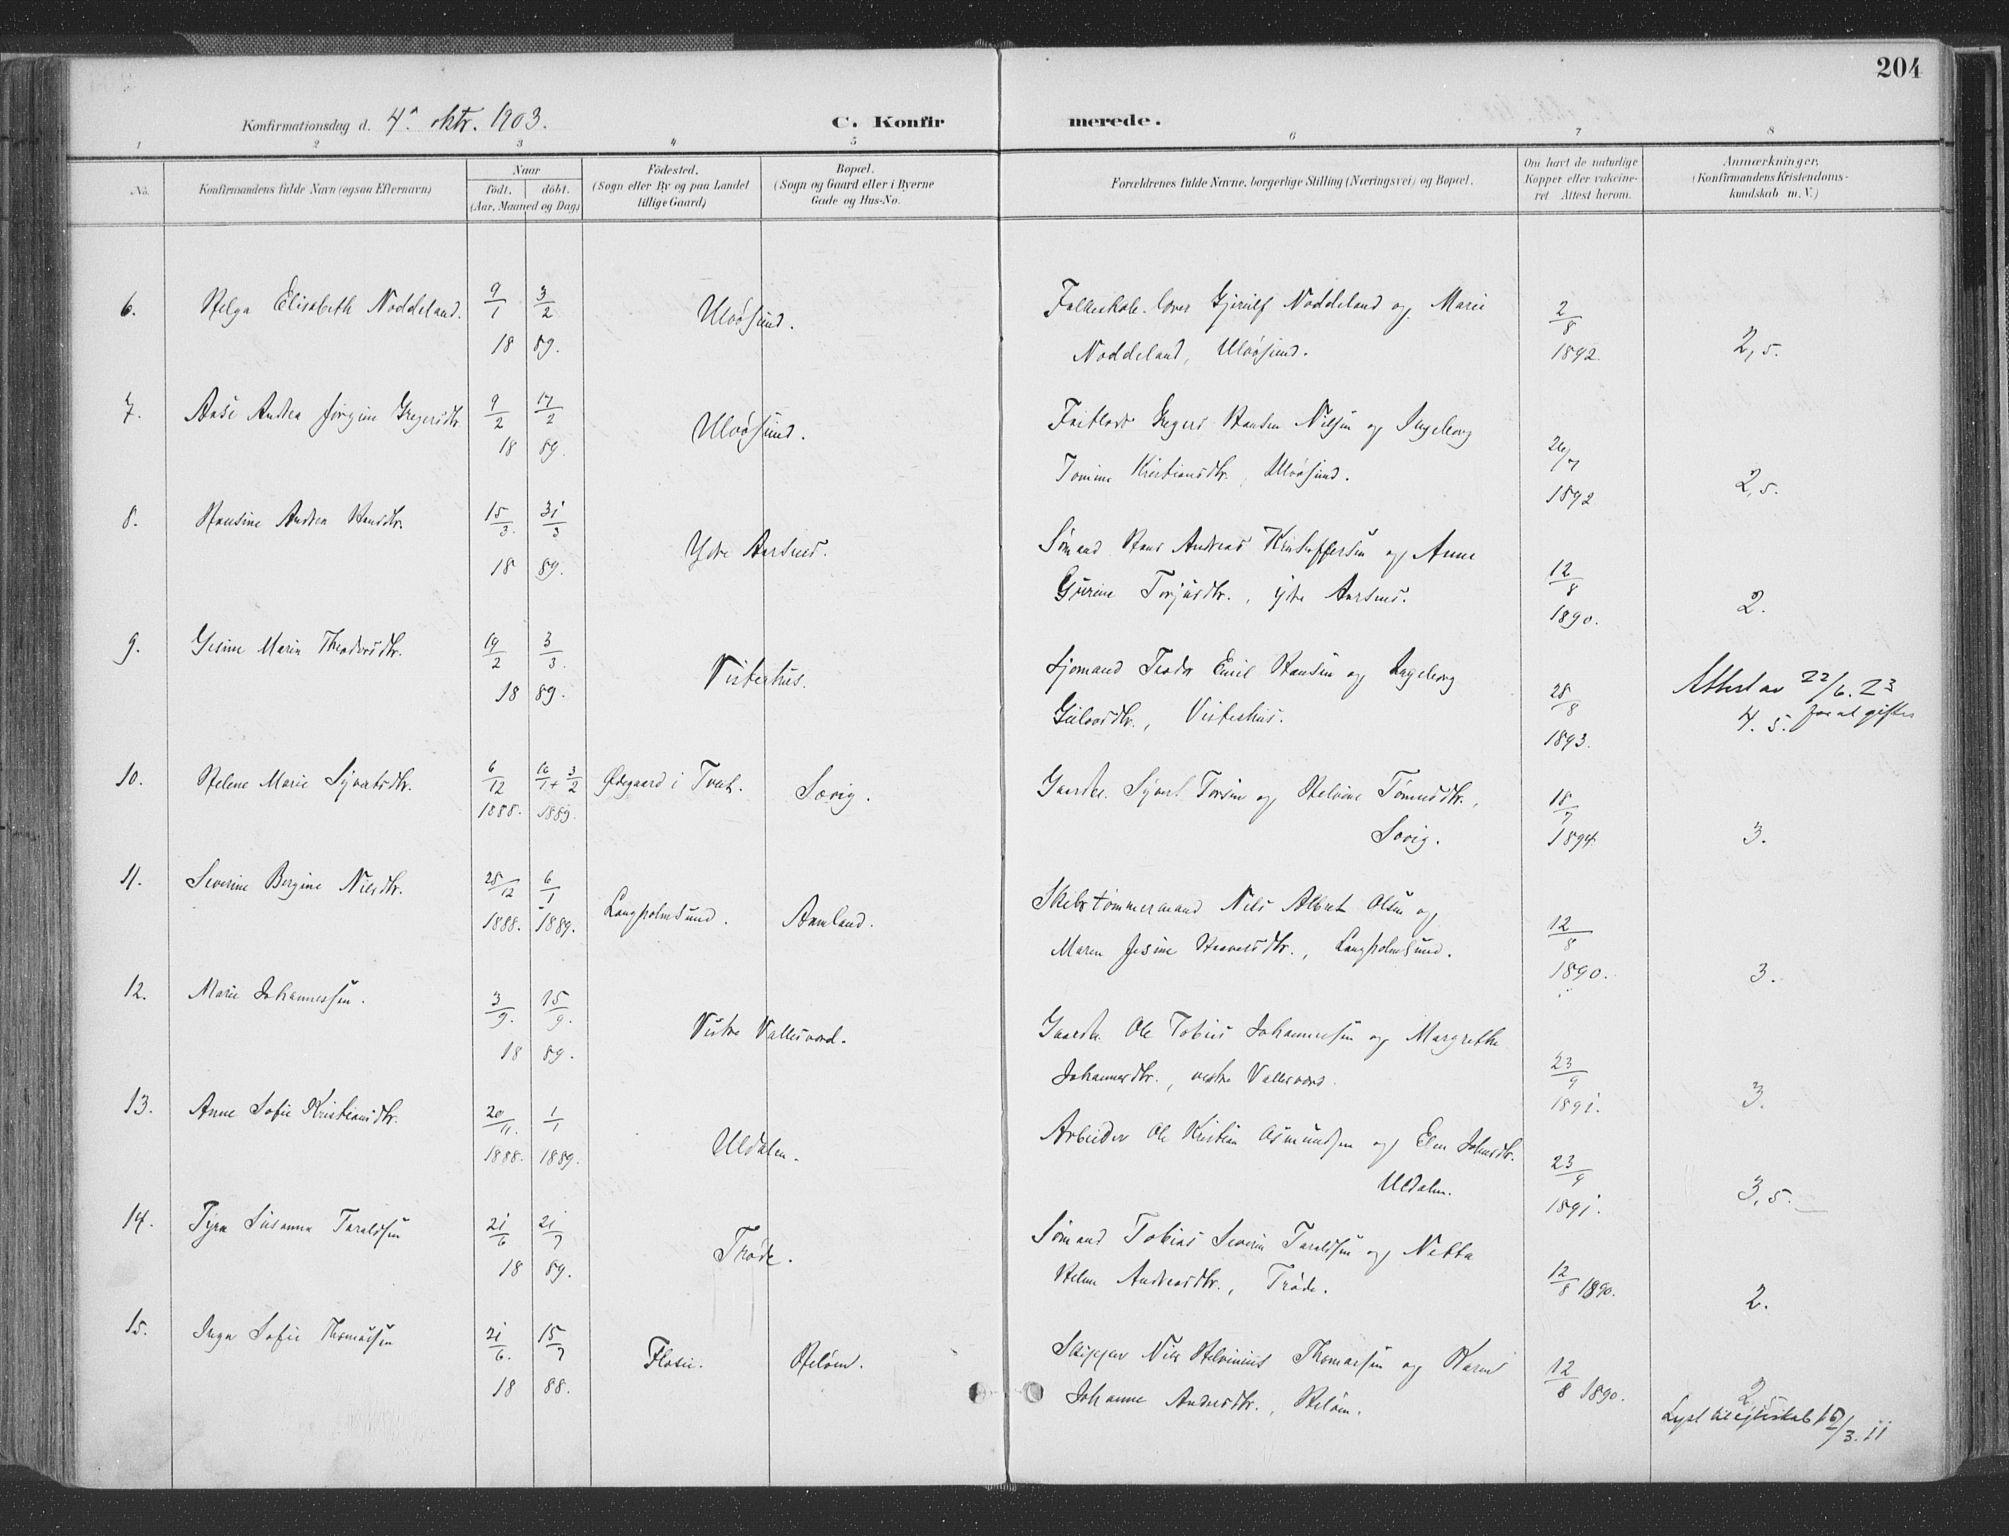 204
Konfirmationsdag d. 4. oktr. 1903. C. Konfirmerede.
1 2 3 4 5 6 7 8
No. Konfirmandens fulde Navn (ogsaa Efternavn) Naar födt. döbt. (Aar, Maaned og Dag) Födested. (Sogn eller By og paa Landet tillige Gaard) Bopæl. (Sogn og Gaard eller i Byerne Gade og Hus-No. Forældrenes fulde Navne, borgerlige Stilling (Næringsvei) og Bopæl. Om havt de naturlige Kopper eller vakcineret Attest herom. Anmærkninger, (Konfirmandens Kristendomskundskab m. V.)
6. Helga Elisabeth Noddeland. 9/1 3/2 Ulvøsund. Folkeskole. lærer Gjerulf Noddeland og Marie 2/8
18 89. Noddeland, Ulvøsund. 1892. 2,5.
7. Aase Andrea Jørgine Gregersdtr. 9/2 17/2 Ulvøsund. Gregers Hansen Nilsen og Ingeborg
18 89. Tomine Kristiansdtr., Ulvøsund. 26/7 1892 2,5.
8. Hansine Andrea Hansdtr. 15/3. 31/3 Ydre Aarsnes. Sømand Hans Andreas Kristoffersen og Anne
18 89. Gurine Torjusdtr., ydre Aarsnes. 12/8 1890. 2.
9. Gesine Marie Theodorsdtr. 19/2 3/3. Vistehus. Sjømand Teodor Emil Hansen og Ingeborg Attest av 22/6. 23
18 89. Gulovsdtr., Vistehus. 28/8 1893. 4. 5. for at giftes
10. Helene Marie Syvertsdtr. 6/12 16/1 + 3/2 Ødegaard i Tveit. Særig. Gaardbr. Syvert Torsen og Helvine Tønnesdtr., 18/7
1888. 1889. Særig. 1894 3.
11. Severine Bergine Nilsdtr. 28/12 6/1 Langholmsund. Aamland. Skibstømmermand Nils Albert Olsen og 12/8
1888. 1889. Maren Jesine Haaversdtr., Langholmsund. 1890. 3.
12. Marie Johannessen. 3/9. 15/9. Vestre Vallesværd. Gaardbr. Ole Tobias Johannessen og Margrethe
18 89. Johannesdtr., vestre Vallesværd. 23/9 1891. 3.
13. Anne Sofie Kristiansdtr. 20/11. 1/1 Uldalen. Arbeider Ole Kristian Osmundsen og Elen Johnsdtr.
1888. 1889. Uldalen. 23/9 1891. 3,5.
14. Tyra Susanna Taraldsen 21/6 21/7 Trøde. Sømand Tobias Severin Taraldsen og Netta
18 89. Helene Andreasdtr., Trøde. 12/8 1890. 2.
15. Inga Sofie Thomassen 21/6. 15/7 Flosie. Heløen. Skipper Nils Helvinius Thomassen og Karen
18 88. Johanne Andersdtr., Heløen. 12/8 1890. 2,5
Lyst til egteskab 15/3. 11